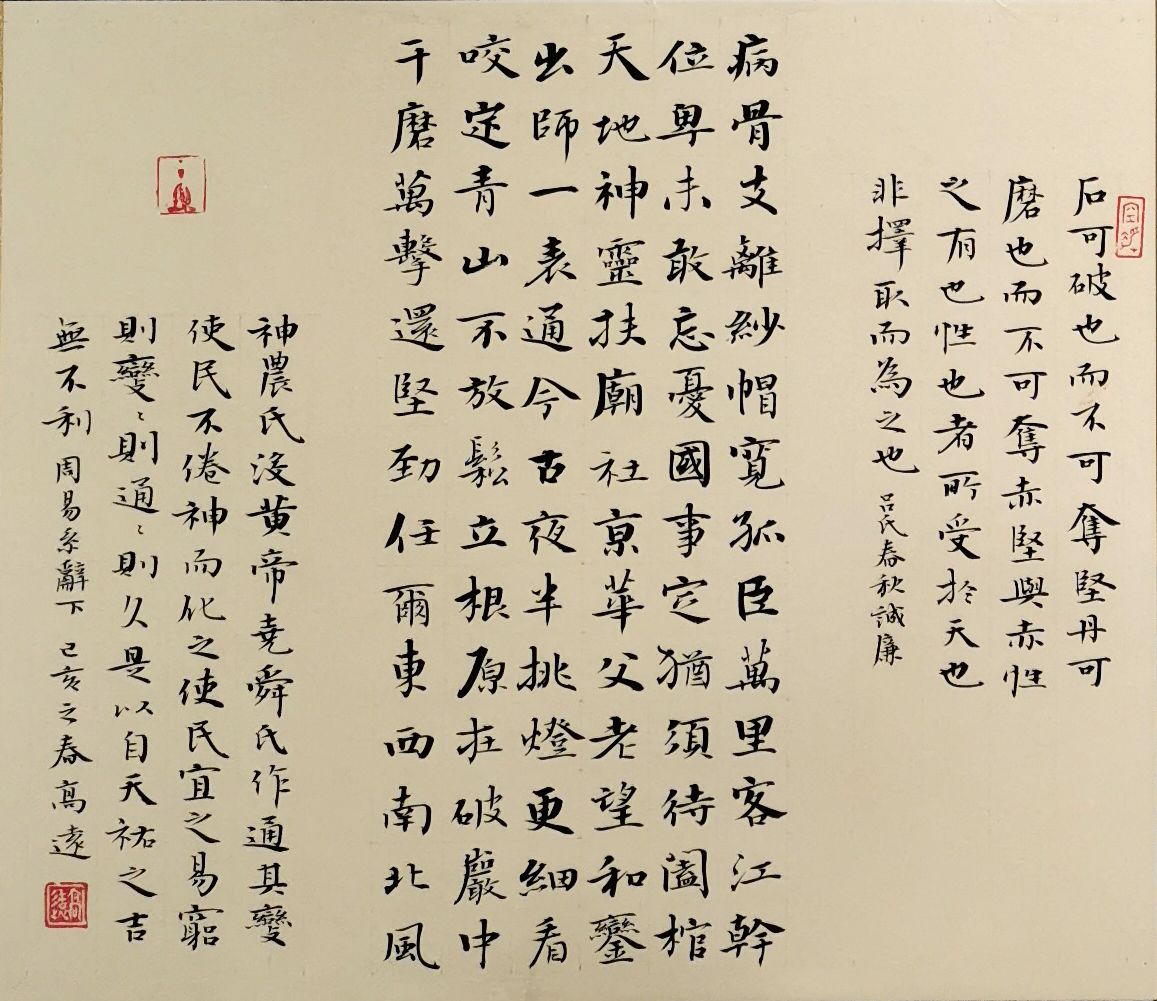 石可破也而不可奪堅丹可
磨也而不可奪赤堅與赤性
之有也性也者所受於天也
非擇取而為之也 呂氏春秋誠廉
病骨支離紗帽寬孤臣萬里客江幹
位卑未敢忘憂國事定猶須待闔棺
天地神靈扶廟社京華父老望和鑾
出師一表通今古夜半挑燈更細看
咬定青山不放鬆立根原在破巖中
千磨萬擊還堅勁任爾東西南北風
神農氏沒黄帝堯舜氏作通其變
使民不倦神而化之使民宜之易窮
則變〻則通〻則久是以自天祐之吉
無不利 周易系辭下 己亥之春高遠